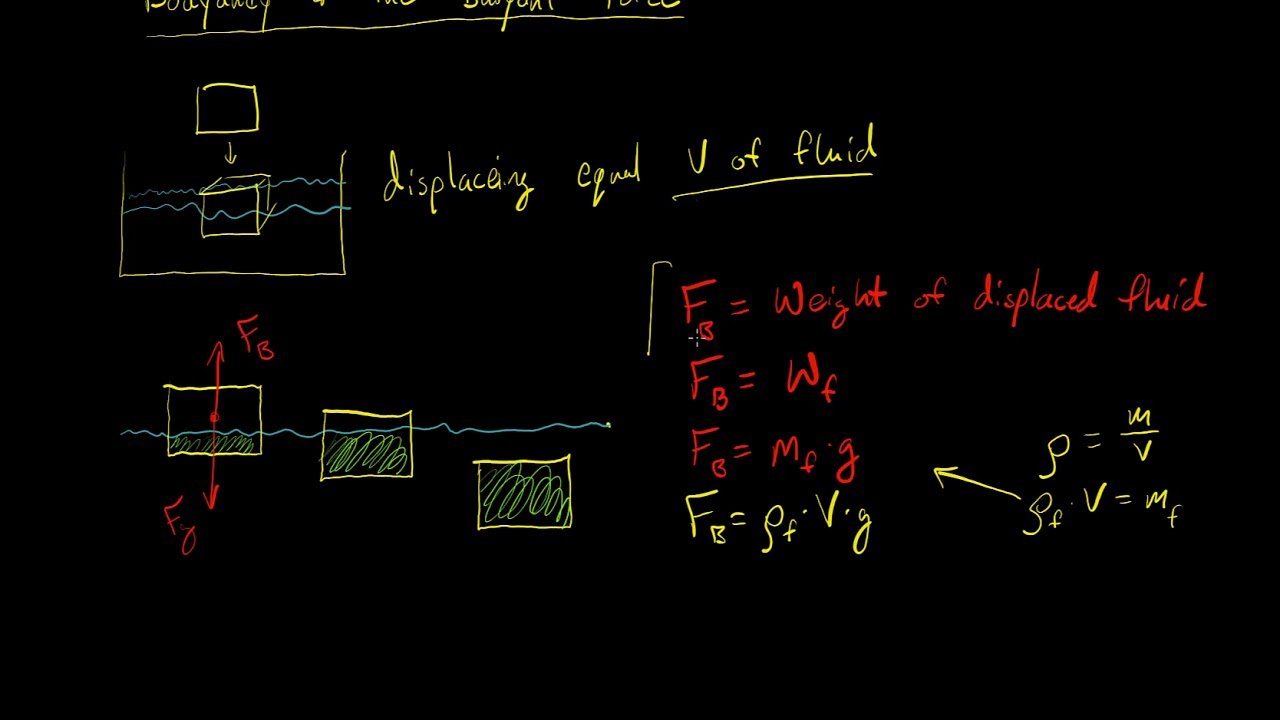 Bouyancy & the Buoyant Force
displaceing equal V of fluid
F_B = Weight of displaced fluid
F_B = W_f
F_B = m_f · g
F_B = ρ_f · V · g
ρ = m/V
ρ_f · V = m_f
F_B
F_g